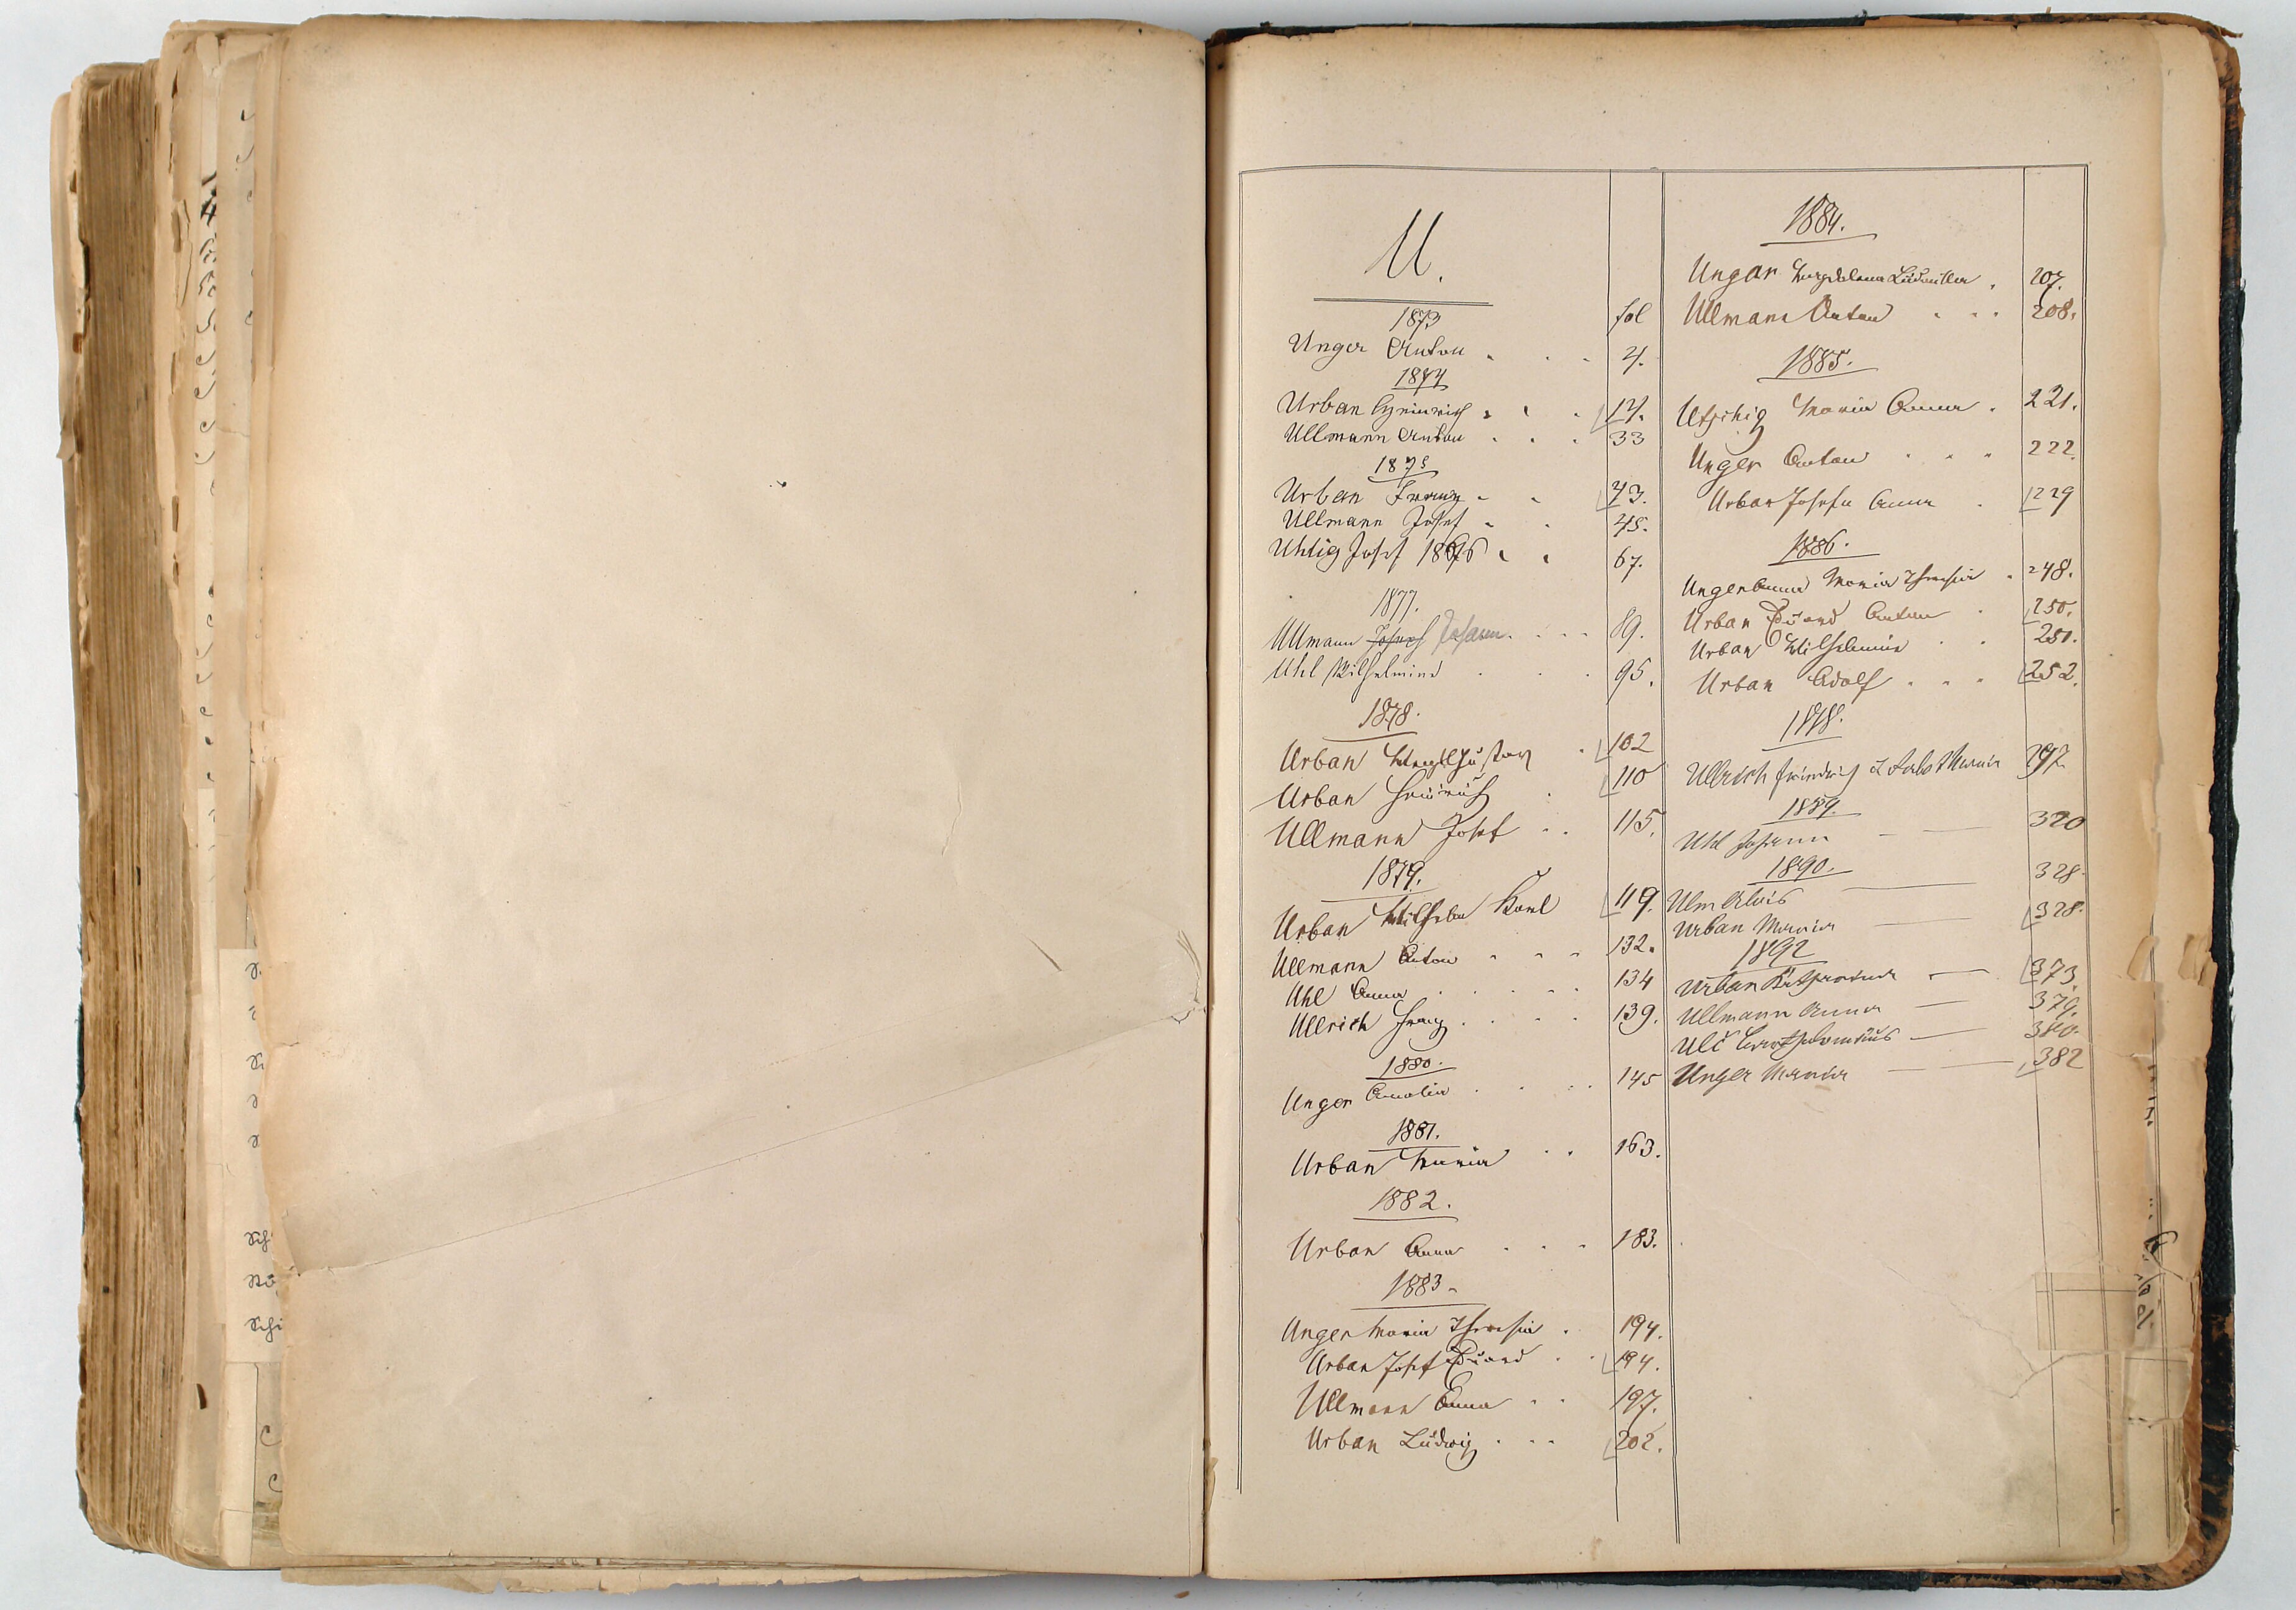 U.
1873 fol
Unger Anton 4.
1874
Urban Heinrich 14.
Ullmann Anton 33
1875
Urban Franz 43.
Ullmann Josef 45.
Uhlig Josef 1876 67.
1877.
Ullmann Josef Johann 89.
Uhl Wilhelmine 95.
1878.
Urban Gustav 102
Urban Heinrich 110
Ullmann Josef 115.
1879.
Urban Wilhelm Karl 119.
Ullmann Anton 132.
Uhl Anna 134
Ullrich Franz 139.
1880.
Unger Amalia 145
1881.
Urban Maria 163.
1882.
Urban Anna 183.
1883.
Unger Maria Theresia 194.
Urban Josef Eduard 194.
Ullmann Anna 197.
Urban Ludwig 202.
1884.
Ungar Magdalena Ludmilla 207.
Ullmann Anton 208.
1885.
Utschig Maria Anna 221.
Unger Anton 222.
Urban Josefa Anna 229
1886.
Unger Anna Maria Theresia 248.
Urban Eduard Anton 250.
Urban Wilhelmine 251.
Urban Adolf 252.
Ullrich Friedrich 297
1889.
Uhl Johann 320
1890.
Ulm Alois 328
Urban Maria 328.
1892
Urban Katharina 373.
Ullmann Anna 379.
Ulč Bartholomäus 380.
Unger Maria 382